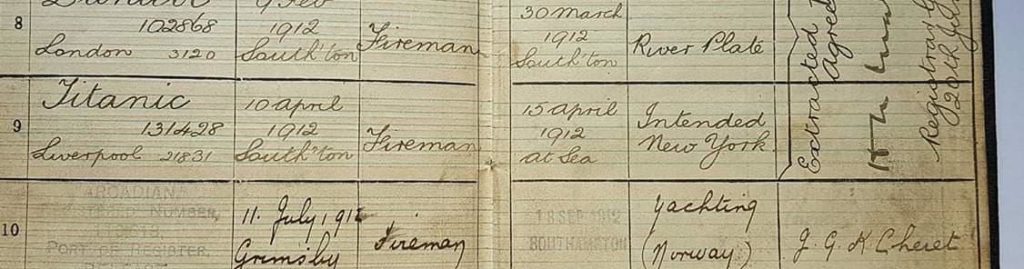 8
102868
London 3120
9 Feb
1912
South'ton
Fireman
30 March
1912
South'ton
River Plate
Extracted
agreed
Registrar G
9
Titanic
131428
Liverpool 21831
10 april
1912
South'ton
Fireman
15 april
1912
at Sea
Intended
New York.
10
ARCADIAN,
NUMBER,
PORT OF REGISTER,
11. July 1912
Grimsby
Fireman
18 SEP 1912
SOUTHAMPTON
Yachting
(Norway)
J. G. K Cheret